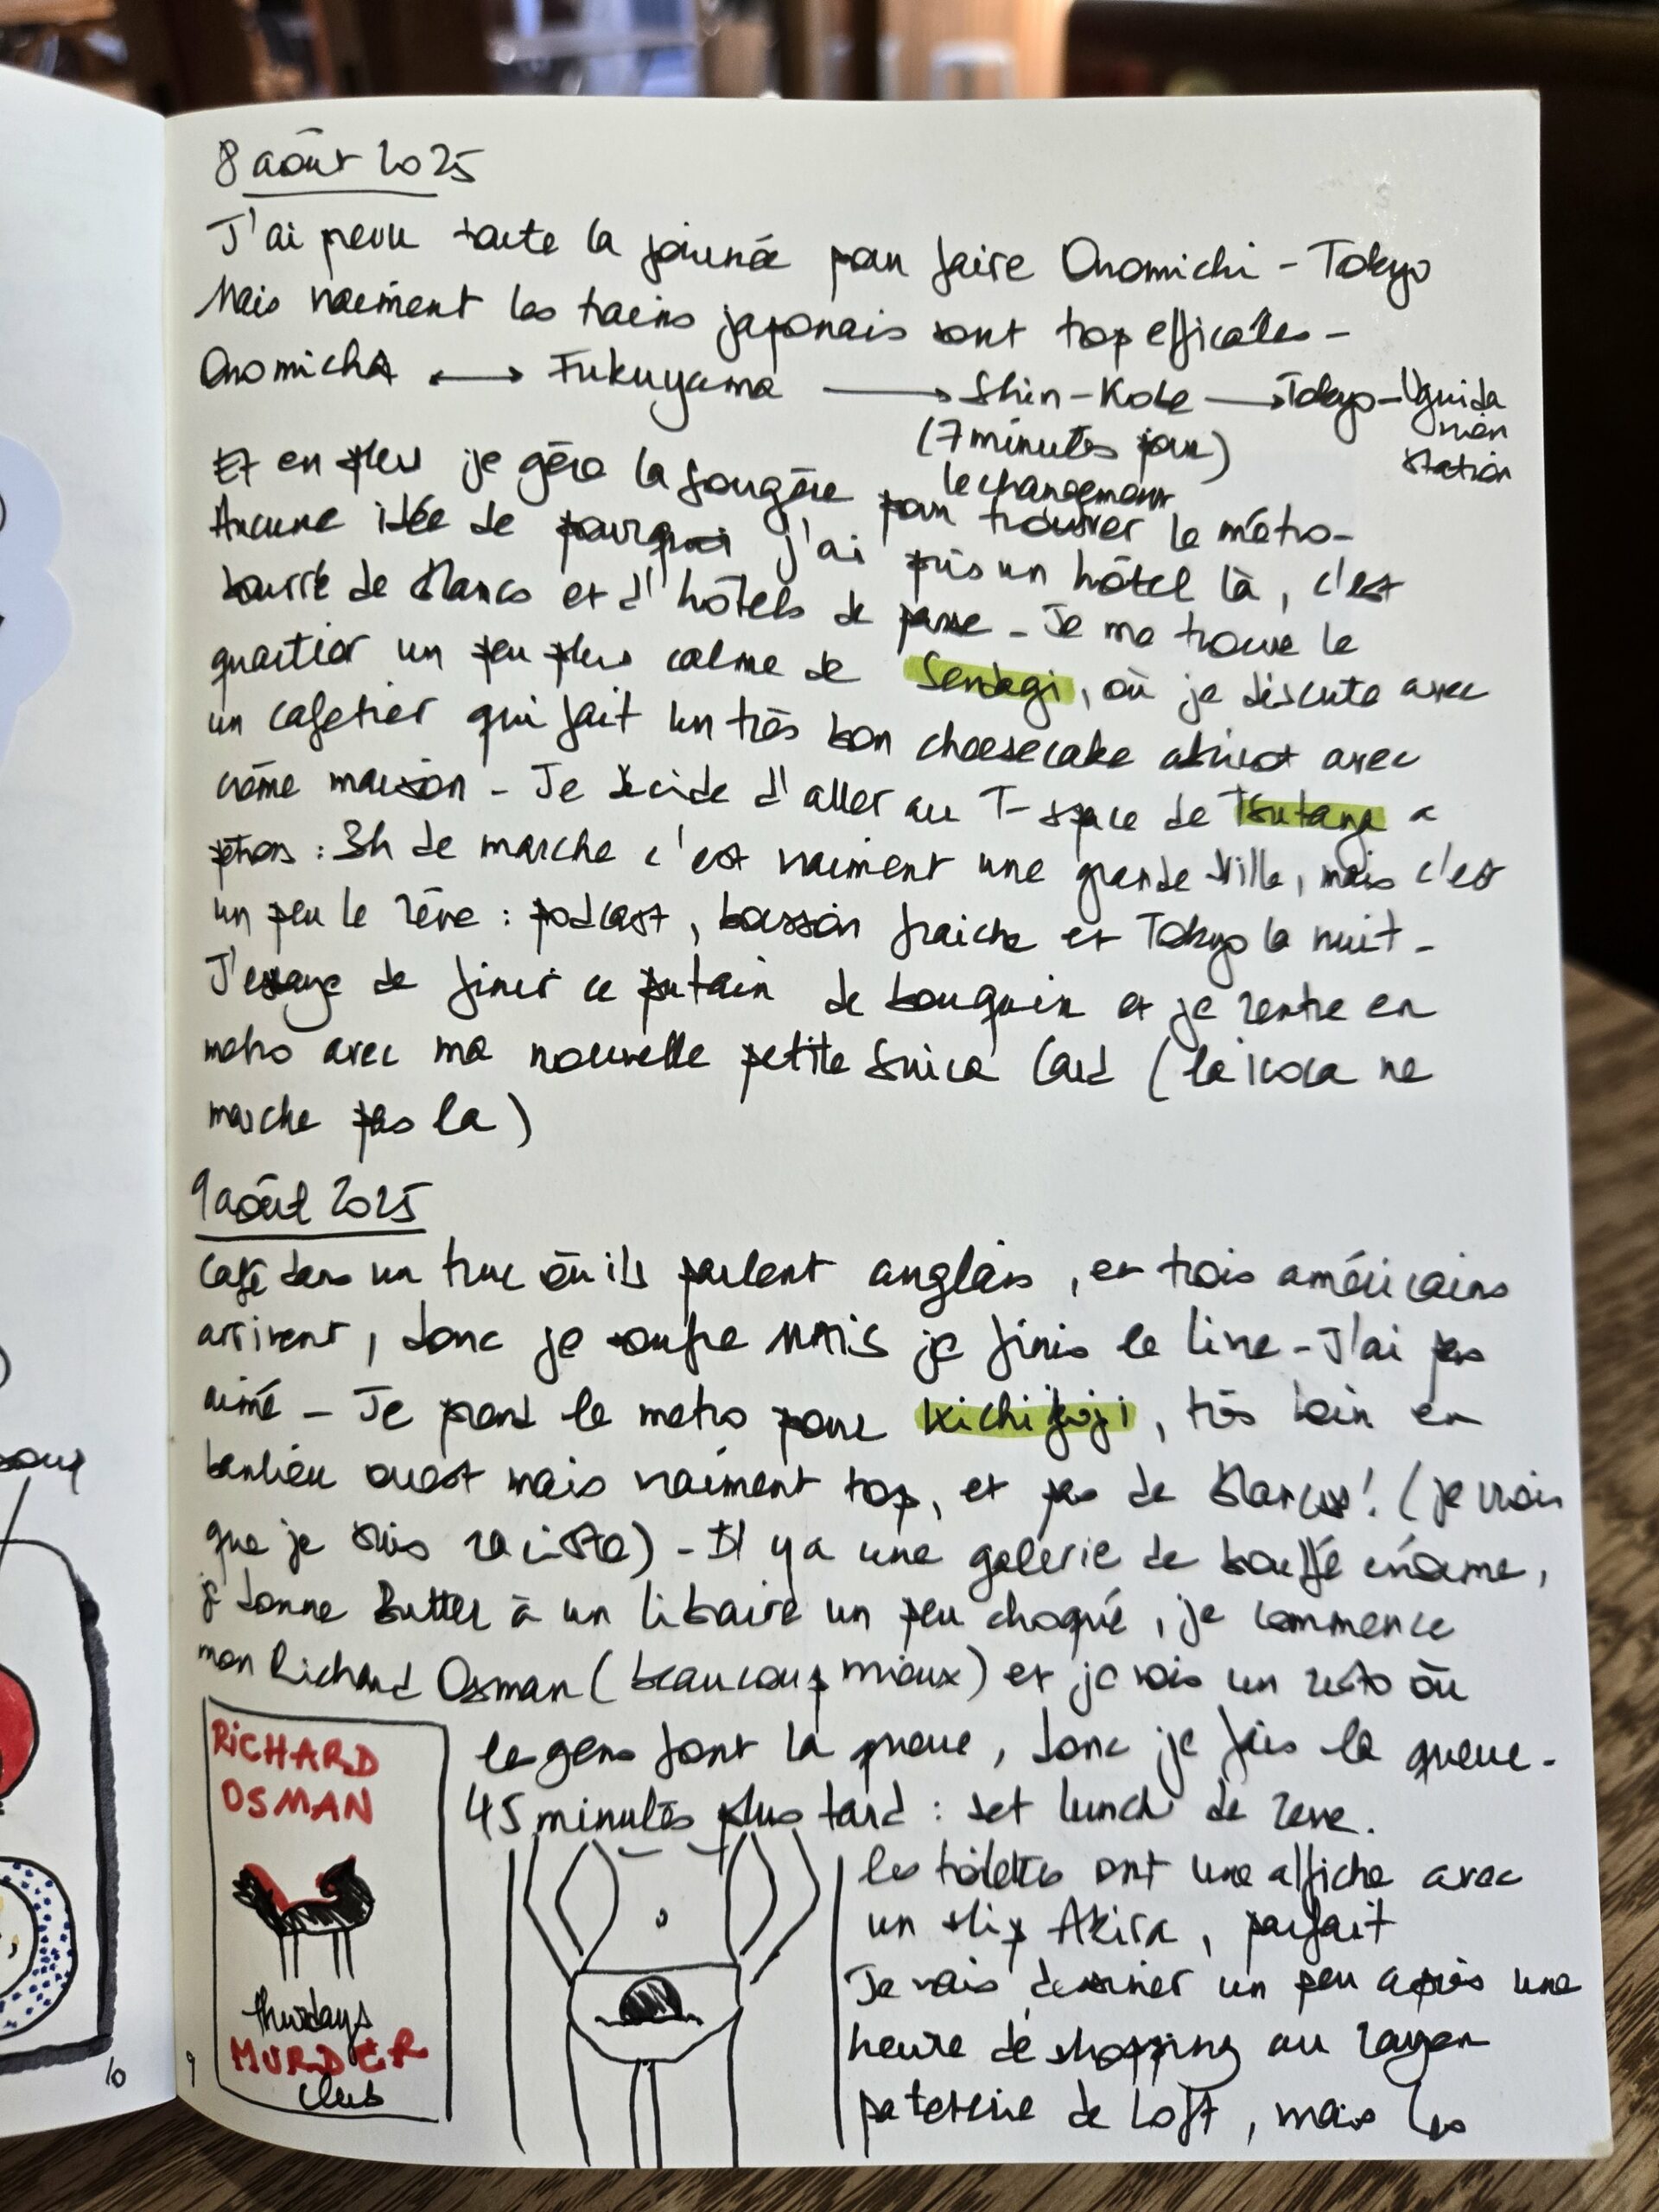 8 août 2025
J'ai prévu toute la journée pour faire Onomichi - Tokyo
Mais vraiment les trains japonais sont top efficaces -
Onomichi ↔ Fukuyama → Shin-Kobe → Tokyo-Uguisu
(7 minutes pour)
le changement
station
Et en plus je gère la fougère pour trouver le métro-
Aucune idée de pourquoi j'ai pris un hôtel là, c'est
bourré de blancs et d'hôtels de passe - Je me trouve le
quartier un peu plus calme de Sendagi, où je discute avec
un cafetier qui fait un très bon cheesecake abricot avec
crème maison - Je décide d'aller au T-space de Tsutaya a
pieds : 3h de marche c'est vraiment une grande ville, mais c'est
un peu le rêve : podcast, boisson fraiche et Tokyo la nuit -
J'essaye de finir ce putain de bouquin et je rentre en
metro avec ma nouvelle petite Suica Card (la icoca ne
marche pas la)
9 août 2025
Café dans un truc où ils parlent anglais, et trois américains
arrivent, donc je soufre MAIS je finis le livre - J'ai pas
aimé - Je prend le metro pour Kichijoji, très loin en
banlieu ouest mais vraiment top, et pas de blancs ! (je crois
que je suis raciste) - Il y a une galerie de bouffe énorme,
je donne Butter à un libraire un peu choqué, je commence
mon Richard Osman (beaucoup mieux) et je vois un resto où
les gens font la queue, donc je fais la queue -
45 minutes plus tard : set lunch de reve.
les toilettes ont une affiche avec
un slip Akira, parfait
Je vais dessiner un peu après une
heure de shopping au rayon
papeterie de Loft, mais les
RICHARD
OSMAN
thursdays
MURDER
club
9
10